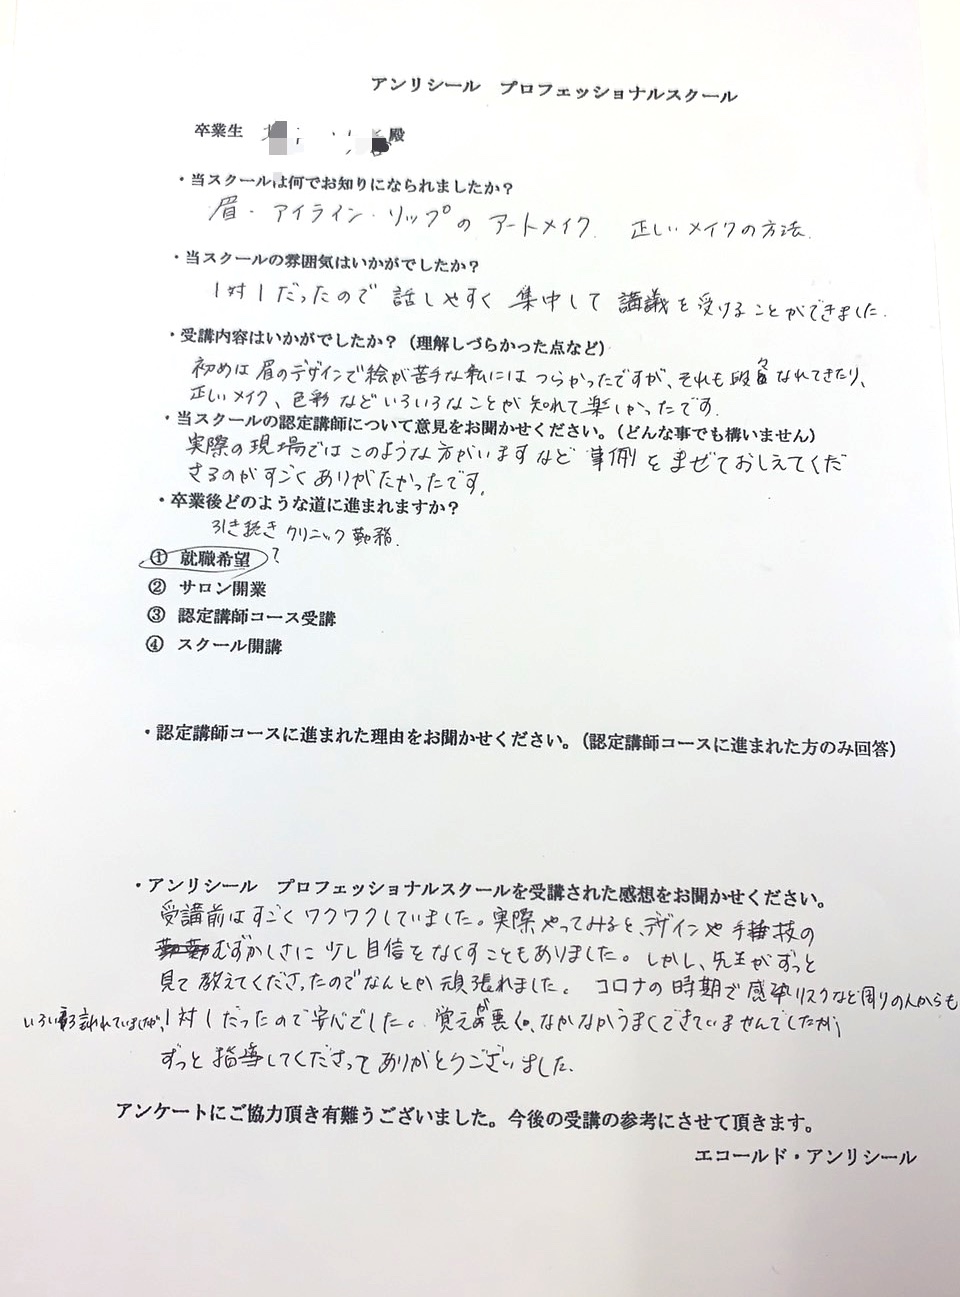 アンリシール　プロフェッショナルスクール
卒業生　殿
・当スクールは何でお知りになられましたか？
眉・アイライン・リップの アートメイク. 正しいメイクの方法.
・当スクールの雰囲気はいかがでしたか？
1対1だったので 話しやすく 集中して 講義を受けることができました.
・受講内容はいかがでしたか？（理解しづらかった点など）
初めは 眉のデザインで絵が苦手な私には つらかったですが、それも段々なれてきたり、
正しいメイク、色彩などいろいろなことが 知れて楽しかったです.
・当スクールの認定講師について意見をお聞かせください。（どんな事でも構いません）
実際の現場ではこのような方がいますなど 事例をまぜておしえてくだ
さるのがすごくありがたかったです.
・卒業後どのような道に進まれますか？
引き続き クリニック勤務.
① 就職希望 ?
② サロン開業
③ 認定講師コース受講
④ スクール開講
・認定講師コースに進まれた理由をお聞かせください。（認定講師コースに進まれた方のみ回答）
・アンリシール　プロフェッショナルスクールを受講された感想をお聞かせください。
受講前はすごくワクワクしていました。実際やってみると、デザインや手技の
むずかしさに 少し自信をなくすこともありました。しかし、先生がずっと
見て 教えてくださったのでなんとか 頑張れました。 コロナの時期で感染リスクなど周りの人からも
いろいろ言われていましたが、1対1だったので安心でした。覚えが悪く、なかなかうまくできていませんでしたが、
ずっと指導してくださって ありがとうございました.
アンケートにご協力頂き有難うございました。今後の受講の参考にさせて頂きます。
エコールド・アンリシール